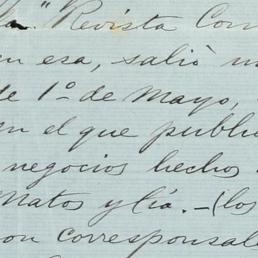 la "Revista Com
en esa, salió u
de 1º de Mayo,
en el que public
negocios hechos
Matos y Cía. - (los
son corresponsale